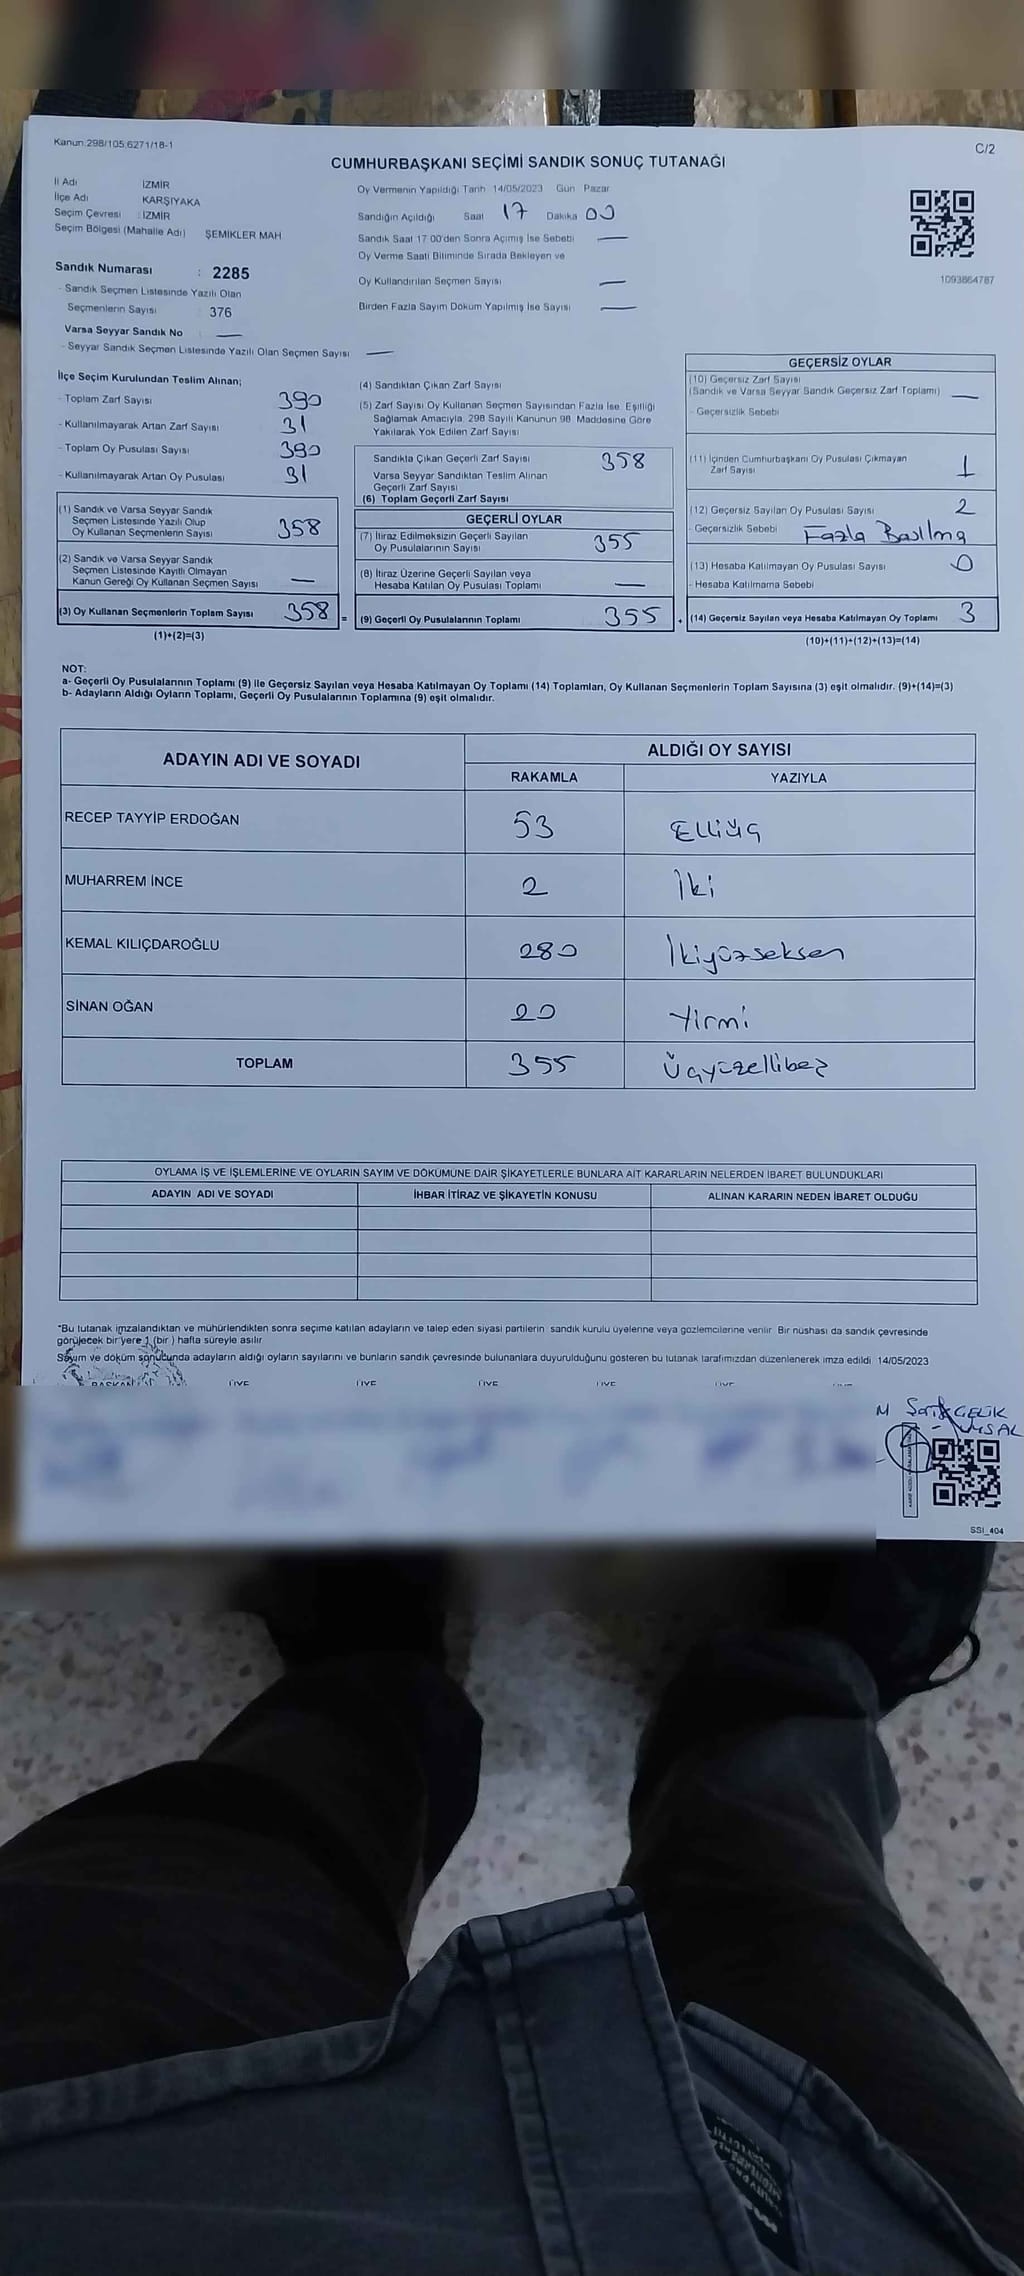 Kanun:298/105,6271/18-1
C/2
CUMHURBAŞKANI SEÇİMİ SANDIK SONUÇ TUTANAĞI
İl Adı İZMİR
İlçe Adı KARŞIYAKA
Seçim Çevresi : İZMİR
Seçim Bölgesi (Mahalle Adı) ŞEMİKLER MAH
Sandık Numarası : 2285
- Sandık Seçmen Listesinde Yazılı Olan
Seçmenlerin Sayısı 376
Varsa Seyyar Sandık No : —
- Seyyar Sandık Seçmen Listesinde Yazılı Olan Seçmen Sayısı —
Oy Vermenin Yapıldığı Tarih 14/05/2023 Gün Pazar
Sandığın Açıldığı Saat 17 Dakika 00
Sandık Saat 17 00'den Sonra Açımış İse Sebebi —
Oy Verme Saati Bitiminde Sırada Bekleyen ve
Oy Kullandırılan Seçmen Sayısı —
Birden Fazla Sayım Döküm Yapılmış İse Sayısı —
1093864787
İlçe Seçim Kurulundan Teslim Alınan;
- Toplam Zarf Sayısı 390
- Kullanılmayarak Artan Zarf Sayısı 31
- Toplam Oy Pusulası Sayısı 390
- Kullanılmayarak Artan Oy Pusulası 31
(1) Sandık ve Varsa Seyyar Sandık
Seçmen Listesinde Yazılı Olup
Oy Kullanan Seçmenlerin Sayısı 358
(2) Sandık ve Varsa Seyyar Sandık
Seçmen Listesinde Kayıtlı Olmayan
Kanun Gereği Oy Kullanan Seçmen Sayısı —
(3) Oy Kullanan Seçmenlerin Toplam Sayısı 358 =
(1)+(2)=(3)
(4) Sandıktan Çıkan Zarf Sayısı
(5) Zarf Sayısı Oy Kullanan Seçmen Sayısından Fazla İse, Eşitliği
Sağlamak Amacıyla, 298 Sayılı Kanunun 98. Maddesine Göre
Yakılarak Yok Edilen Zarf Sayısı
Sandıkta Çıkan Geçerli Zarf Sayısı 358
Varsa Seyyar Sandıktan Teslim Alınan
Geçerli Zarf Sayısı
(6) Toplam Geçerli Zarf Sayısı
GEÇERLİ OYLAR
(7) İtiraz Edilmeksizin Geçerli Sayılan
Oy Pusulalarının Sayısı 355
(8) İtiraz Üzerine Geçerli Sayılan veya
Hesaba Katılan Oy Pusulası Toplamı —
(9) Geçerli Oy Pusulalarının Toplamı 355 +
GEÇERSİZ OYLAR
(10) Geçersiz Zarf Sayısı
(Sandık ve Varsa Seyyar Sandık Geçersiz Zarf Toplamı) —
- Geçersizlik Sebebi
(11) İçinden Cumhurbaşkanı Oy Pusulası Çıkmayan
Zarf Sayısı 1
(12) Geçersiz Sayılan Oy Pusulası Sayısı 2
- Geçersizlik Sebebi Fazla Basılma
(13) Hesaba Katılmayan Oy Pusulası Sayısı 0
- Hesaba Katılmama Sebebi
(14) Geçersiz Sayılan veya Hesaba Katılmayan Oy Toplamı 3
(10)+(11)+(12)+(13)=(14)
NOT:
a- Geçerli Oy Pusulalarının Toplamı (9) ile Geçersiz Sayılan veya Hesaba Katılmayan Oy Toplamı (14) Toplamları, Oy Kullanan Seçmenlerin Toplam Sayısına (3) eşit olmalıdır. (9)+(14)=(3)
b- Adayların Aldığı Oyların Toplamı, Geçerli Oy Pusulalarının Toplamına (9) eşit olmalıdır.
ADAYIN ADI VE SOYADI
ALDIĞI OY SAYISI
RAKAMLA YAZIYLA
RECEP TAYYİP ERDOĞAN 53 Elliüç
MUHARREM İNCE 2 İki
KEMAL KILIÇDAROĞLU 280 İkiyüzseksen
SİNAN OĞAN 20 Yirmi
TOPLAM 355 Üçyüzellibeş
OYLAMA İŞ VE İŞLEMLERİNE VE OYLARIN SAYIM VE DÖKÜMÜNE DAİR ŞİKAYETLERLE BUNLARA AİT KARARLARIN NELERDEN İBARET BULUNDUKLARI
ADAYIN ADI VE SOYADI İHBAR İTİRAZ VE ŞİKAYETİN KONUSU ALINAN KARARIN NEDEN İBARET OLDUĞU
*Bu tutanak imzalandıktan ve mühürlendikten sonra seçime katılan adayların ve talep eden siyasi partilerin sandık kurulu üyelerine veya gözlemcilerine verilir Bir nüshası da sandık çevresinde
görülecek bir yere 1 (bir ) hafta süreyle asılır
Sayım ve döküm sonucunda adayların aldığı oyların sayılarını ve bunların sandık çevresinde bulunanlara duyurulduğunu gösteren bu tutanak tarafımızdan düzenlenerek imza edildi 14/05/2023
BAŞKAN ÜYE ÜYE ÜYE ÜYE ÜYE
ÇELİK
SSI_404